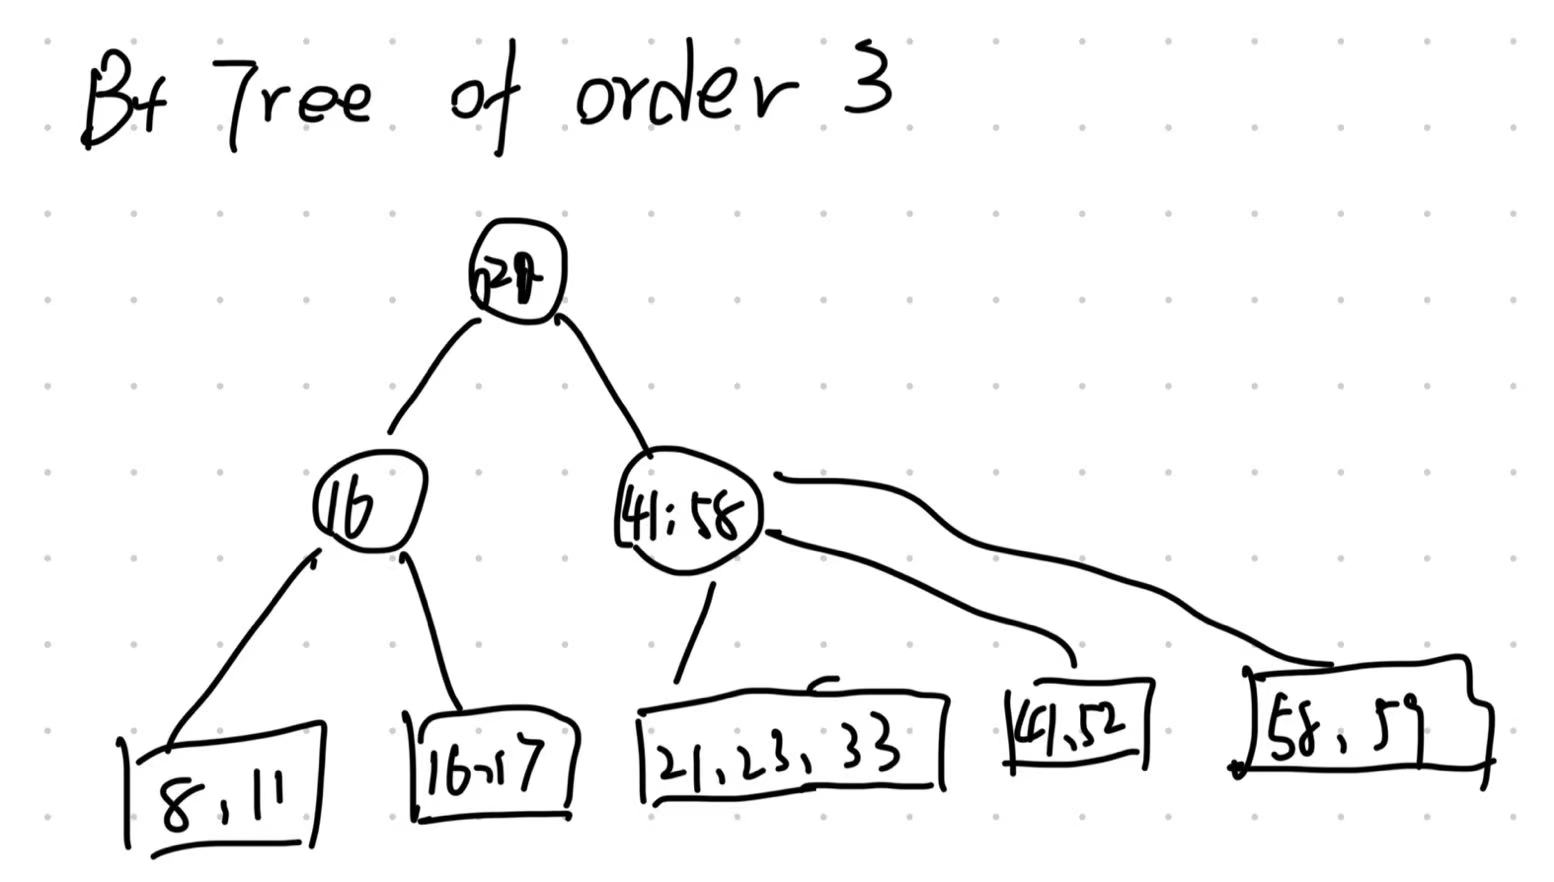 B+ Tree of order 3
16
41:58
8, 11
16,17
21,23,33
41,52
58,59